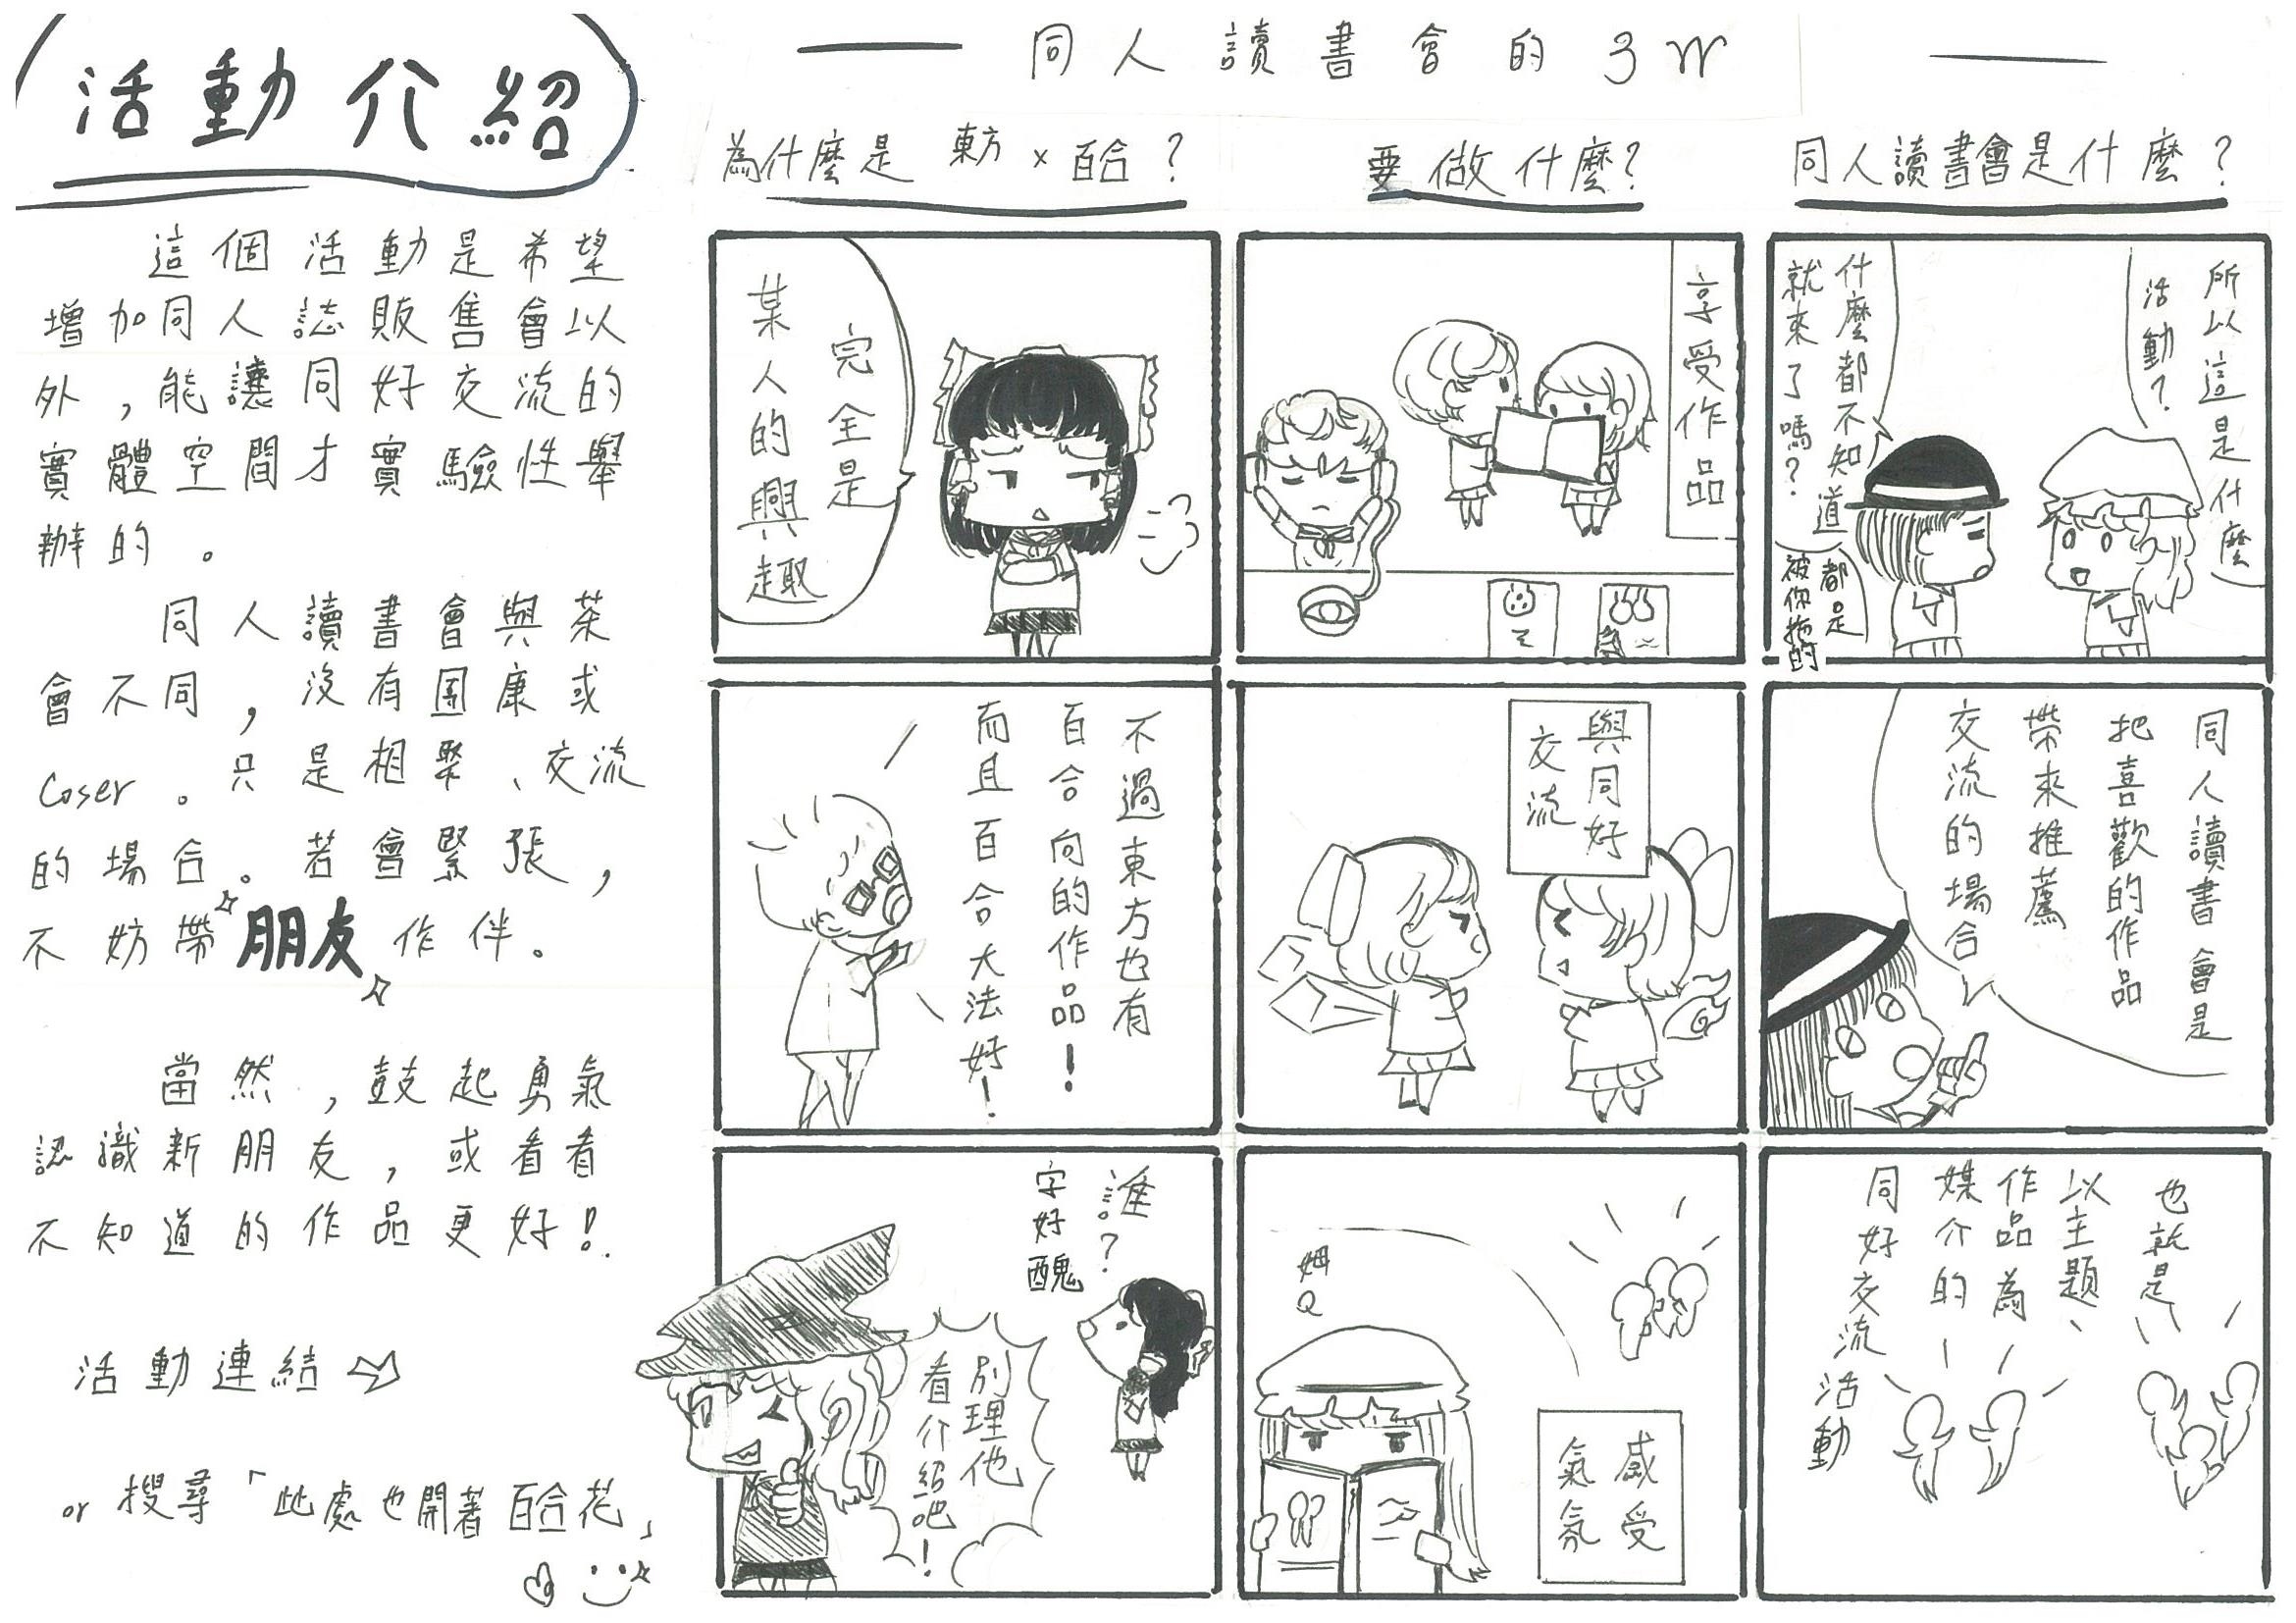 活動介紹
這個活動是希望
增加同人誌販售會以
外,能讓同好交流的
實體空間才實驗性舉
辦的。
同人讀書會與茶
會不同,沒有團康或
Coser。只是相聚、交流
的場合。若會緊張,
不妨帶朋友作伴。
當然,鼓起勇氣
認識新朋友,或看看
不知道的作品更好!
活動連結
or 搜尋「此處也開著百合花」
同人讀書會的3W
同人讀書會是什麼?
所以這是什麼
活動?
什麼都不知道
就來了嗎?
都是
被你拖的
同人讀書會是
把喜歡的作品
帶來推薦
交流的場合
也就是
以主題、
作品為
媒介的
同好交流
活動
要做什麼?
享受作品
與同好
交流
姆Q
感受
氣氛
為什麼是東方×百合?
完全是
某人的興趣
不過東方也有
百合向的作品!
而且百合大法好!
誰?
字好醜
別理他
看介紹吧!